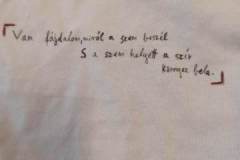 Van fájdalom, miről a szem beszél
S a szem helyett a szív
könnyez bele.